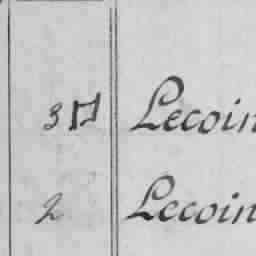 3 Lecoin
2 Lecoin